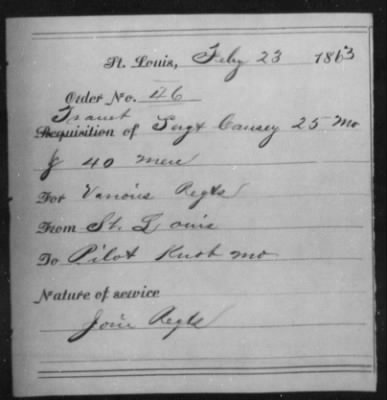 St. Louis, Feby 23 1863
Order No. 46
Transpt
Requisition of Sergt Causey 25 Mo
& 40 men
For Various Regts
From St. Louis
To Pilot Knob Mo
Nature of service
Join Regts